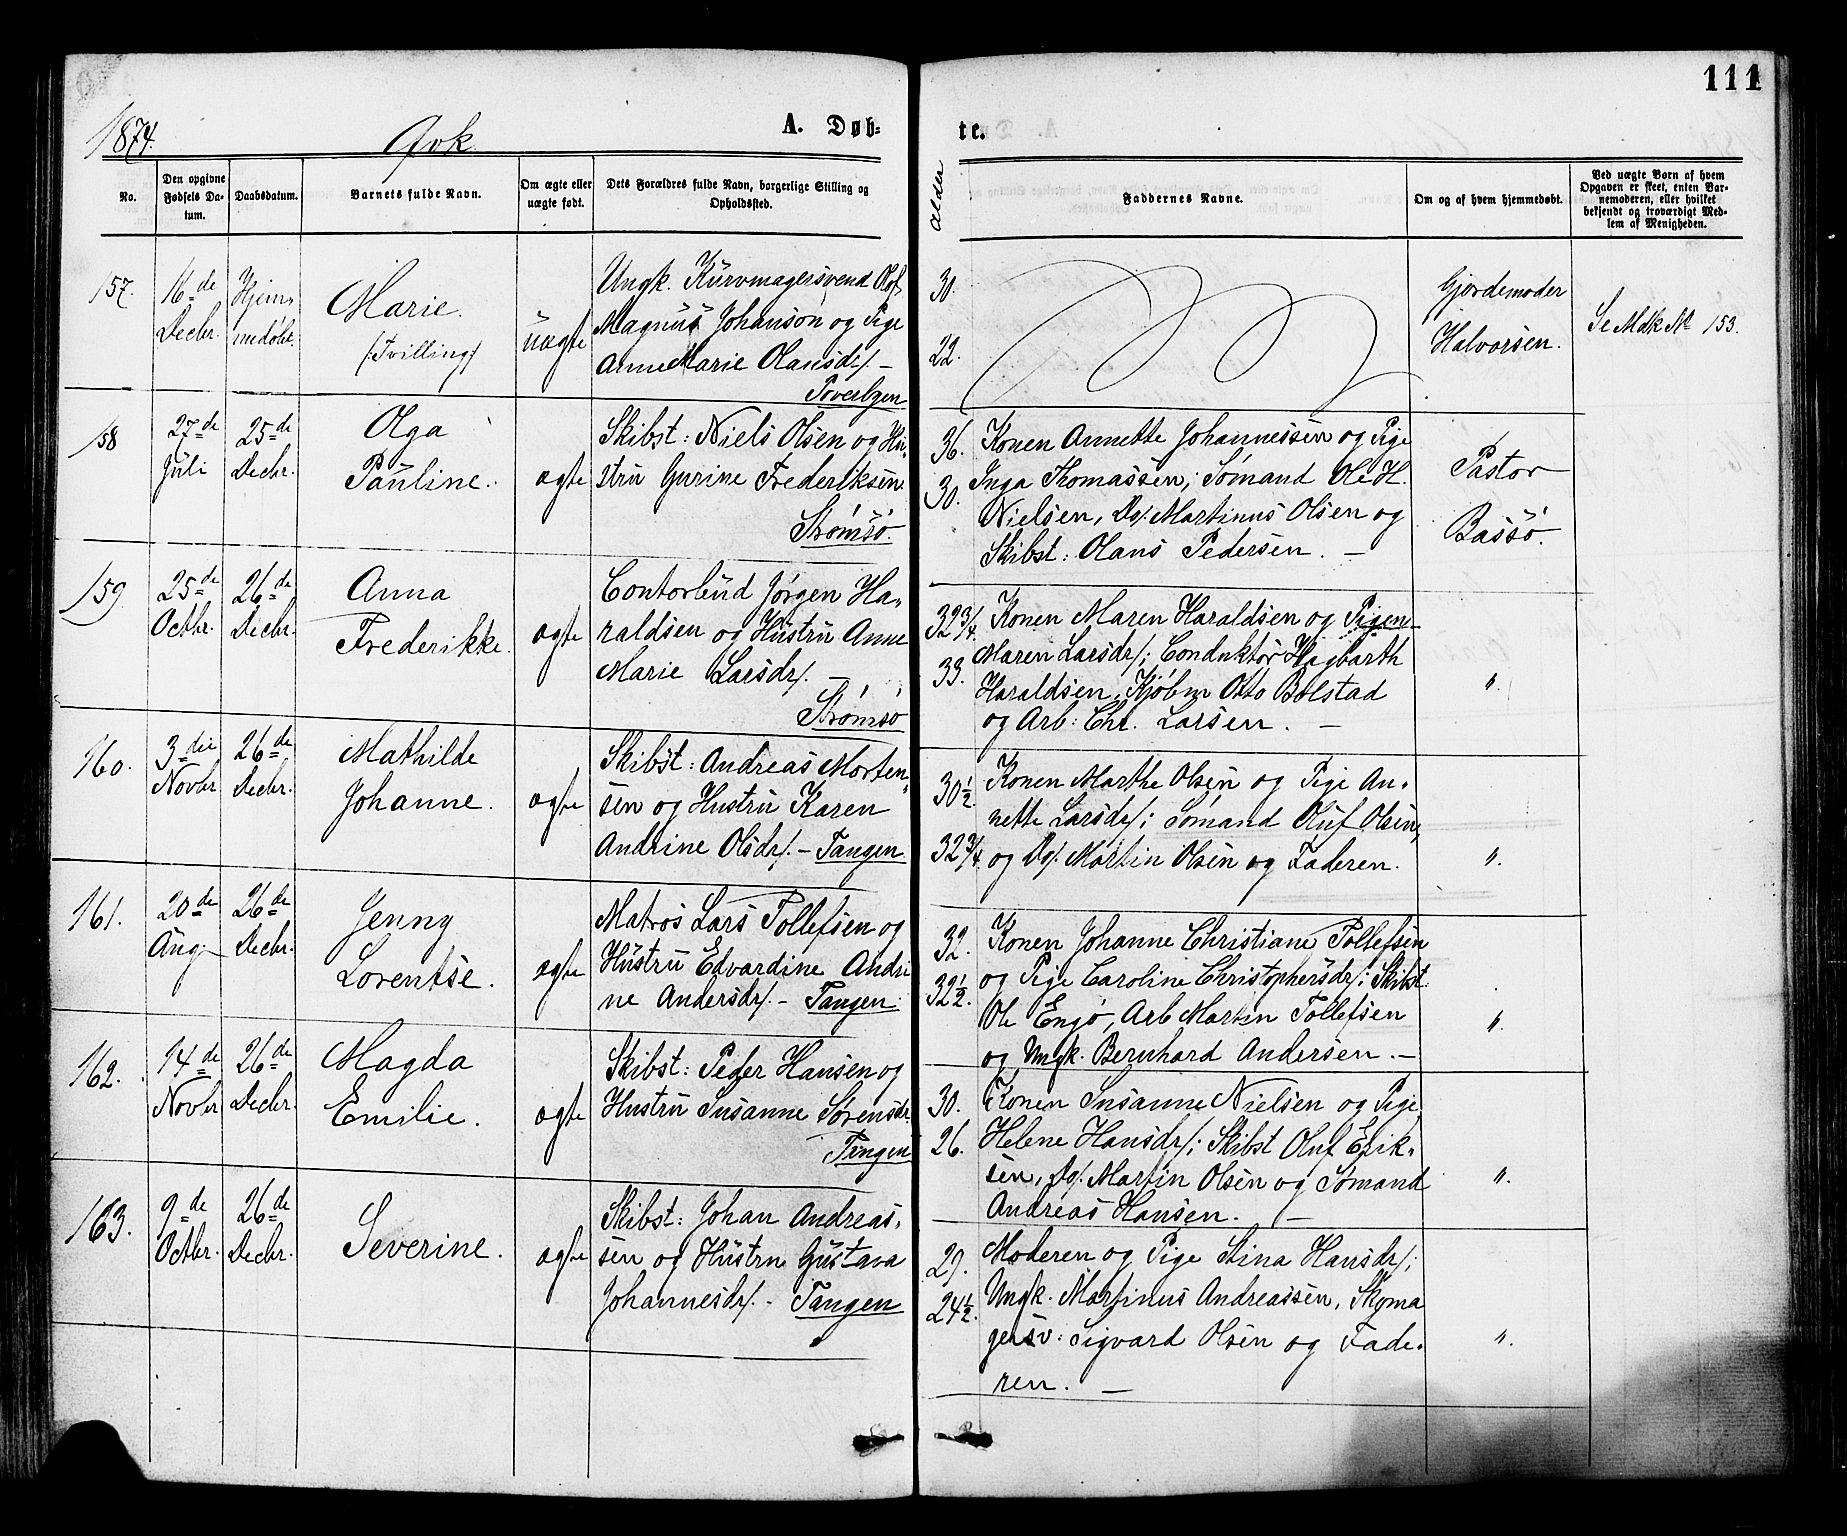 111
1874.
Qvk
A. Døb-
te.
No.
Den opgivne
Fødsels Da-
tum.
Daabsdatum.
Barnets fulde Navn.
Om ægte eller
uægte født.
Dets Forældres fulde Navn, borgerlige Stilling og
Opholdssted.
Alder
Faddernes Navne.
Om og af hvem hjemmedøbt.
Ved uægte Børn af hvem
Opgaven er skeet, enten Bar-
nemoderen, eller hvilket
bekjendt og troværdigt Med-
lem af Menigheden.
157.
16de
Decbr.
Hjem-
medøbt.
Marie.
(Tvilling)
uægte
Ungk. Kurvmagersvend Olof
Magnus Johanson og Pige
Anne Marie Olausdr/. –
Toverbyen
30.
22.
Gjordemoder
Halvorsen.
Se Mdk No 153.
158
27de
Juli
25de
Decbr.
Olga
Pauline.
ægte
Skibst: Niels Olsen og Hu-
stru Gurine Frederiksen.
Strømsø.
36.
30.
Konen Annette Johannessen og Pige
Inga Thomassen; Sømand Ole H.
Nielsen, Do/. Martinus Olsen og
Skibst: Olaus Pedersen. –
Pastor
Bassø.
159
25de
Octbr.
26de
Decbr.
Anna
Frederikke.
ægte
Contorbud Jørgen Ha-
raldsen og Hustru Anne
Marie Larsdr/. –
Strømsø
32 3/4.
33.
Konen Maren Haraldsen og Pigen
Maren Larsdr/; Conduktør Hagbarth
Haraldsen, Kjøbm Otto Bolstad
og Arb: Chr. Larsen. –
".
160.
3die
Novbr
26de
Decbr.
Mathilde
Johanne.
ægte
Skibst: Andreas Morten-
sen og Hustru Karen
Andrine Olsdr/. – Tangen
30 1/2.
32 3/4.
Konen Marthe Olsen og Pige An-
nette Larsdr/; Sømand Oluf Olsen,
og Do/. Martin Olsen og Faderen.
".
161.
20de
Aug
26de
Decbr.
Jenny
Lorentse.
ægte
Matros Lars Tollefsen og
Hustru Edvardine Andri
ne Andersdr/. – Tangen.
32.
32 1/2.
Konen Johanne Christiane Tollefsen
og Pige Caroline Christophersdr/; Skibst.
Ole Engø, Arb Martin Tollefsen
og Ungk. Bernhard Andersen. –
".
162.
14de
Novbr
26de
Decbr.
Magda
Emilie.
ægte
Skibst: Peder Hansen og
Hustru Susanne Sørensdr.
Tangen
30.
26.
Konen Susanne Nielsen og Pige
Helene Hansdr/; Skibst Oluf Erik-
sen, Do/. Martin Olsen og Sømand
Andreas Hansen. –
".
163.
9de
Octbr.
26de
Decbr.
Severine.
ægte
Skibst: Johan Andreas-
sen og Hustru Gustava
Johannesdr/. – Tangen
29.
24 1/2.
Moderen og Pige Stina Hansdr/;
Ungk. Martinus Andreassen, Skoma
gersv: Sigvard Olsen og Fade-
ren. –
".